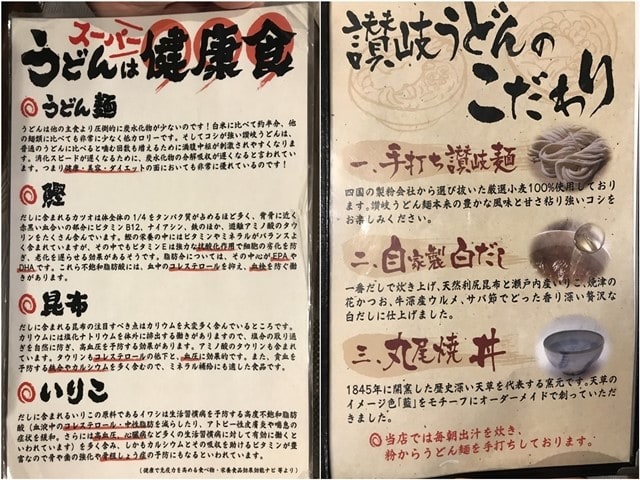 スーパー
うどんは健康食
うどん麺
うどんは他の主食より圧倒的に炭水化物が少ないのです！白米に比べて約半分、他
の麺類に比べても非常に少なく低カロリーです。そしてコシが強い讃岐うどんは、
普通のうどんに比べると噛む回数も増えるために満腹中枢が刺激されやすくなりま
す。消化スピードが遅くなるために、炭水化物の分解吸収が遅くなると言われてい
ます。つまり健康・美容・ダイエットの面においても非常に優れているのです！
鰹
だしに含まれるカツオは体全体の 1/4 をタンパク質が占めるほど多く、背骨に近く
赤黒い血合いの部分にビタミン B12、ナイアシン、鉄のほか、遊離アミノ酸のタウ
リンをたくさん含んでいます。鰹の栄養の中にはビタミンやミネラルがバランスよ
く含まれていますが、その中でもビタミンEは強力な抗酸化作用で細胞の劣化を防
ぎ、老化を遅らせる効果があるそうです。脂肪分については、その中心がEPAや
DHAです。これら不飽和脂肪酸には、血中のコレステロールを抑え、血栓を防ぐ働
きがあります。
昆布
だしに含まれる昆布の注目すべき点はカリウムを大変多く含んでいるところです。
カリウムには塩化ナトリウムを体外に排出する働きがありますので、塩分の取り過
ぎを自然に防ぎ、高血圧を予防する効果があります。アミノ酸のタウリンも含まれ
ています。タウリンもコレステロールの低下と、血圧に効果的です。また、貧血を
予防する鉄分やカルシウムを多く含むので、ミネラル補給にも適した食品です。
いりこ
だしに含まれるいりこの原料であるイワシは生活習慣病を予防する高度不飽和脂肪
酸（血液中のコレステロール・中性脂肪を減らしたり、アトピー性皮膚炎や喘息の
症状を緩和。さらには高血圧、心臓病など多くの生活習慣病に対して有効に働くと
いわれています）を多く含み、しかもカルシウムとその吸収を助けるビタミンDが豊
富なので骨や歯の強化や骨粗しょう症の予防にもなるといわれています。
（健康で免疫力を高める食べ物・栄養食品効果効能ナビ 等より）
讃岐うどんの
こだわり
一、手打ち讃岐麺
四国の製粉会社から選び抜いた厳選小麦100％使用しており
ます。讃岐うどん麺本来の豊かな風味と甘さ粘り強いコシを
お楽しみください。
二、自家製 白だし
一番だしで炊き上げ、天然利尻昆布と瀬戸内産いりこ、焼津の
花かつお、牛深産ウルメ、サバ節でとった香り深い贅沢な
白だしに仕上げました。
三、丸尾焼 丼
1845年に開窯した歴史深い天草を代表する窯元です。天草の
イメージ色「藍」をモチーフにオーダーメイドで創っていただ
きました。
当店では毎朝出汁を炊き、
粉からうどん麺を手打ちしております。